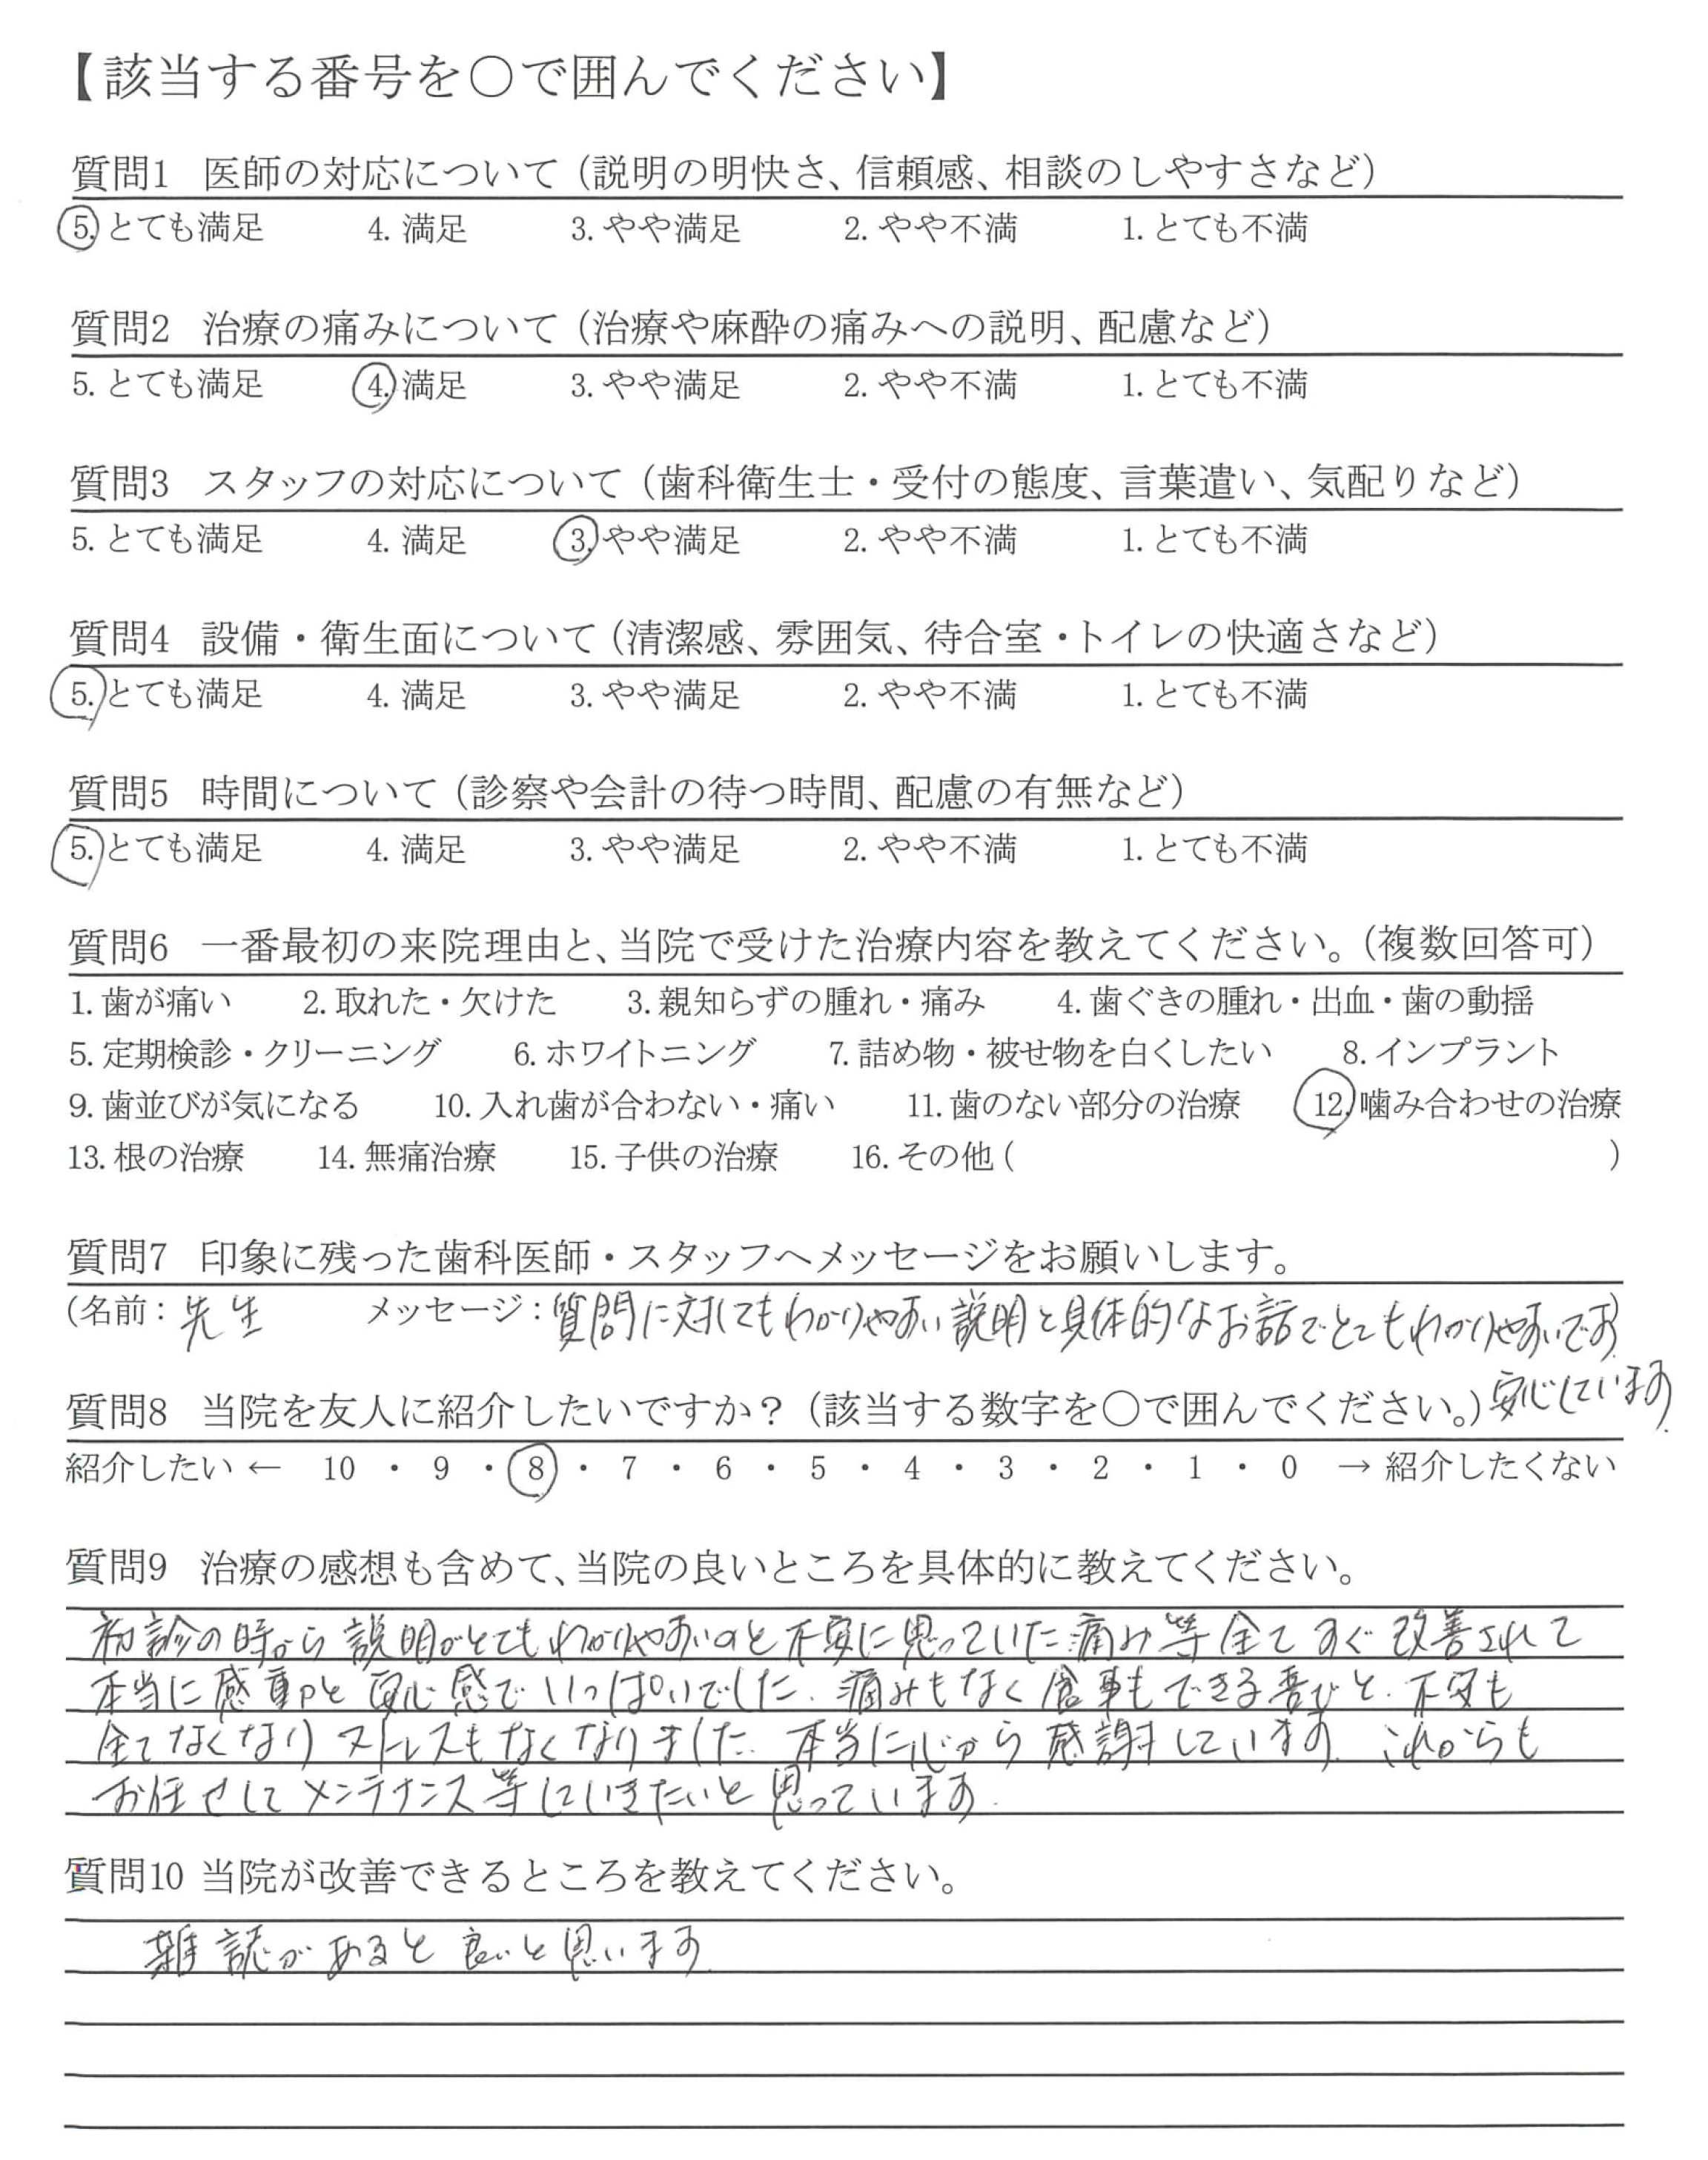 【該当する番号を○で囲んでください】
質問1 医師の対応について（説明の明快さ、信頼感、相談のしやすさなど）
5. とても満足 4. 満足 3. やや満足 2. やや不満 1. とても不満
質問2 治療の痛みについて（治療や麻酔の痛みへの説明、配慮など）
5. とても満足 4. 満足 3. やや満足 2. やや不満 1. とても不満
質問3 スタッフの対応について（歯科衛生士・受付の態度、言葉遣い、気配りなど）
5. とても満足 4. 満足 3. やや満足 2. やや不満 1. とても不満
質問4 設備・衛生面について（清潔感、雰囲気、待合室・トイレの快適さなど）
5. とても満足 4. 満足 3. やや満足 2. やや不満 1. とても不満
質問5 時間について（診察や会計の待つ時間、配慮の有無など）
5. とても満足 4. 満足 3. やや満足 2. やや不満 1. とても不満
質問6 一番最初の来院理由と、当院で受けた治療内容を教えてください。（複数回答可）
1. 歯が痛い 2. 取れた・欠けた 3. 親知らずの腫れ・痛み 4. 歯ぐきの腫れ・出血・歯の動揺
5. 定期検診・クリーニング 6. ホワイトニング 7. 詰め物・被せ物を白くしたい 8. インプラント
9. 歯並びが気になる 10. 入れ歯が合わない・痛い 11. 歯のない部分の治療 12. 噛み合わせの治療
13. 根の治療 14. 無痛治療 15. 子供の治療 16. その他（ ）
質問7 印象に残った歯科医師・スタッフへメッセージをお願いします。
（名前：先生 メッセージ：質問に対してもわかりやすい説明と具体的なお話でとてもわかりやすいです）
安心しています.
質問8 当院を友人に紹介したいですか？（該当する数字を○で囲んでください。）
紹介したい ← 10 ・ 9 ・ 8 ・ 7 ・ 6 ・ 5 ・ 4 ・ 3 ・ 2 ・ 1 ・ 0 → 紹介したくない
質問9 治療の感想も含めて、当院の良いところを具体的に教えてください。
初診の時から説明がとてもわかりやすいのと不安に思っていた痛み等全てすぐ改善されて
本当に感動と安心感でいっぱいでした. 痛みもなく食事もできる喜びと. 不安も
全てなくなりストレスもなくなりました. 本当に心から感謝しています. これからも
お任せしてメンテナンス等していきたいと思っています.
質問10 当院が改善できるところを教えてください。
雑誌があると良いと思います.